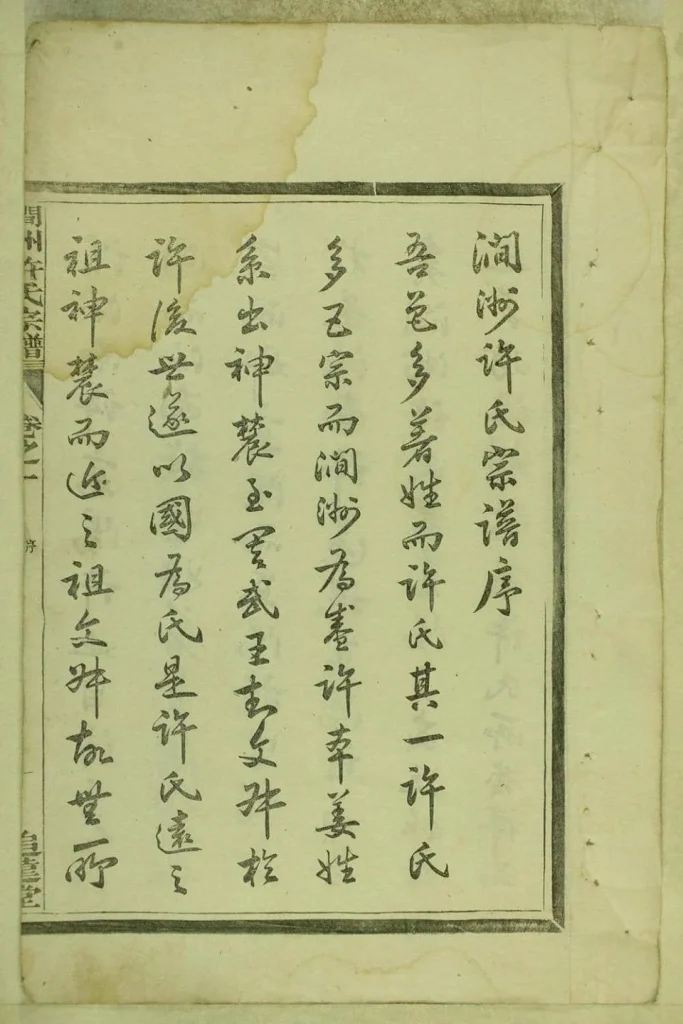 澗洲許氏宗譜序
吾邑多著姓而許氏其一許氏
多巨宗而澗洲為盛許本姜姓
系出神農至周武王封文叔於
許後世遂以國為氏是許氏遠之
祖神農而近之祖文叔故無所
澗洲許氏宗譜 卷之一 序 一